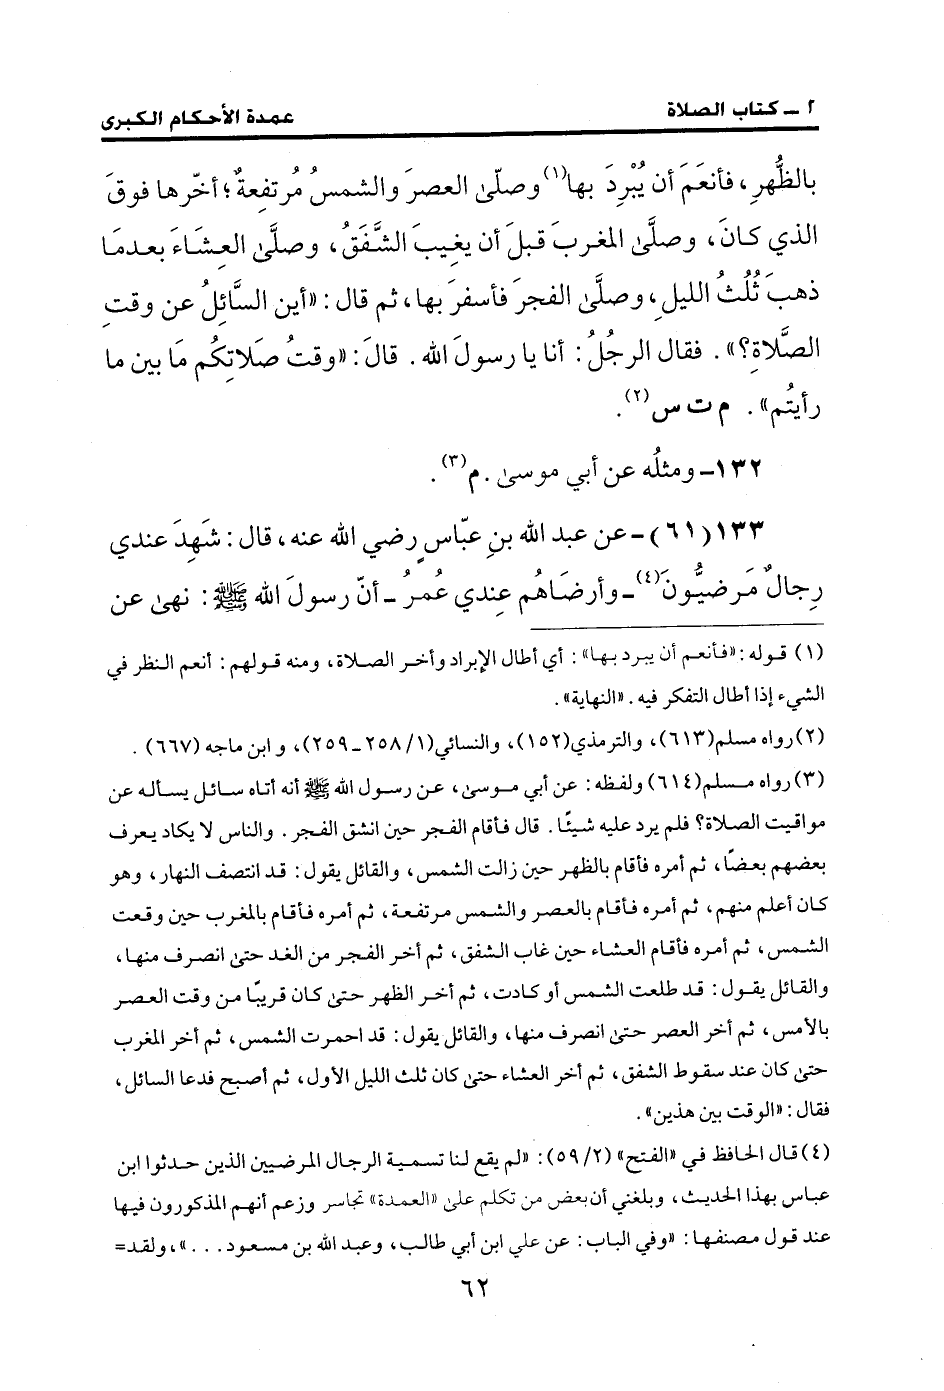 ٢ ــ كتاب الصلاة
عمدة الأحكام الكبرى
بالظُّهرِ، فأنعَمَ أن يُبْرِدَ بها(١) وصلّىٰ العصرَ والشمسُ مُرتفعةٌ؛ أخّرها فوقَ
الذي كانَ، وصلَّىٰ المغربَ قبلَ أن يغِيبَ الشَّفَقُ، وصلَّىٰ العِشَاءَ بعدمَا
ذهبَ ثُلُثُ الليلِ، وصلَّىٰ الفجرَ فأسفرَ بها، ثم قال: «أين السَّائلُ عن وقتِ
الصَّلاةِ؟». فقال الرجُلُ: أنا يا رسولَ الله. قالَ: «وقتُ صَلاتِكُم مَا بين ما
رأيتُم». م ت س(٢).
١٣٢ــ ومثلُه عن أبي موسىٰ. م(٣).
١٣٣ (٦١) ــ عن عبد الله بنِ عبّاسٍ رضي الله عنه، قال: شَهِدَ عندي
رِجالٌ مَرضيُّونَ(٤) ــ وأرضَاهُم عِندي عُمرُ ــ أنّ رسولَ الله ﷺ: نهىٰ عن
(١) قوله: «فأنعم أن يبرد بها»: أي أطال الإبراد وأخر الصلاة، ومنه قولهم: أنعم النظر في
الشيء إذا أطال التفكر فيه. «النهاية».
(٢) رواه مسلم (٦١٣)، والترمذي (١٥٢)، والنسائي (١/ ٢٥٨ ــ ٢٥٩)، وابن ماجه (٦٦٧).
(٣) رواه مسلم (٦١٤) ولفظه: عن أبي موسىٰ، عن رسول الله ﷺ أنه أتاه سائل يسأله عن
مواقيت الصلاة؟ فلم يرد عليه شيئًا. قال فأقام الفجر حين انشق الفجر. والناس لا يكاد يعرف
بعضهم بعضًا، ثم أمره فأقام بالظهر حين زالت الشمس، والقائل يقول: قد انتصف النهار، وهو
كان أعلم منهم، ثم أمره فأقام بالعصر والشمس مرتفعة، ثم أمره فأقام بالمغرب حين وقعت
الشمس، ثم أمره فأقام العشاء حين غاب الشفق، ثم أخر الفجر من الغد حتىٰ انصرف منها،
والقائل يقول: قد طلعت الشمس أو كادت، ثم أخر الظهر حتىٰ كان قريبًا من وقت العصر
بالأمس، ثم أخر العصر حتىٰ انصرف منها، والقائل يقول: قد احمرت الشمس، ثم أخر المغرب
حتىٰ كان عند سقوط الشفق، ثم أخر العشاء حتىٰ كان ثلث الليل الأول، ثم أصبح فدعا السائل،
فقال: «الوقت بين هذين».
(٤) قال الحافظ في «الفتح» (٢/ ٥٩): «لم يقع لنا تسمية الرجال المرضيين الذين حدثوا ابن
عباس بهذا الحديث، وبلغني أن بعض من تكلم علىٰ «العمدة» تجاسر وزعم أنهم المذكورون فيها
عند قول مصنفها: «وفي الباب: عن علي ابن أبي طالب، وعبد الله بن مسعود...»، ولقد=
٦٢